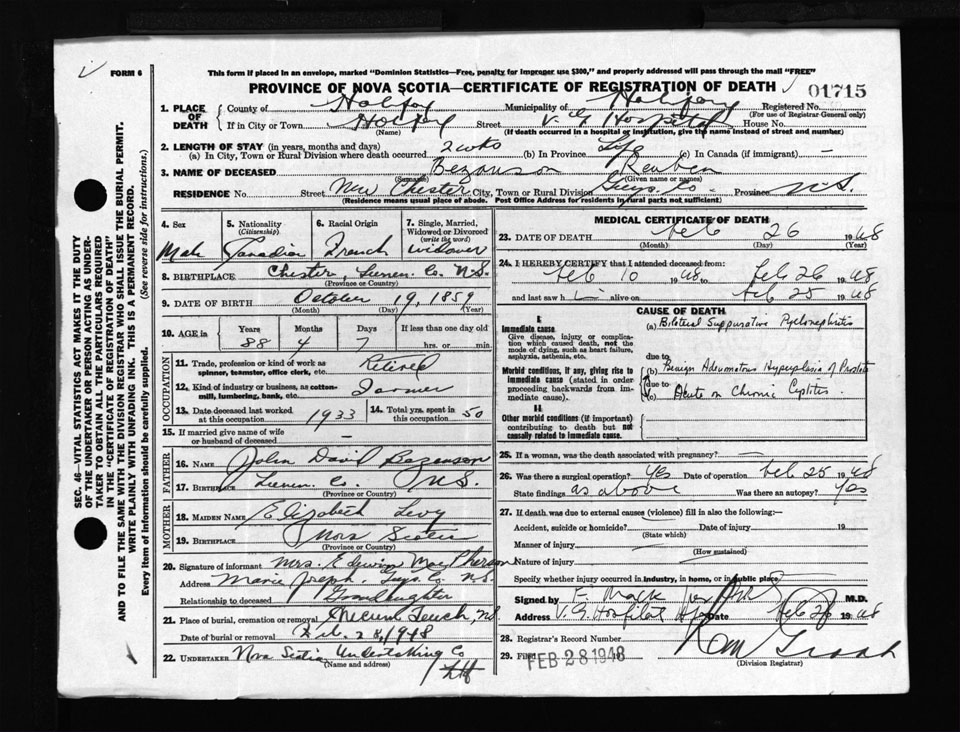 FORM 6
This form if placed in an envelope, marked "Dominion Statistics—Free, penalty for improper use $300," and properly addressed will pass through the mail "FREE"
PROVINCE OF NOVA SCOTIA—CERTIFICATE OF REGISTRATION OF DEATH
01715
1. PLACE OF DEATH
County of Halifax Municipality of Halifax Registered No.
(For use of Registrar General only)
If in City or Town Halifax Street V. G Hospital House No.
(Name) (If death occurred in a hospital or institution, give the name instead of street and number)
2. LENGTH OF STAY (in years, months and days)
(a) In City, Town or Rural Division where death occurred 2 wks (b) In Province Life (c) In Canada (if immigrant) —
3. NAME OF DECEASED Bezanson Reuben
(Surname) (Given name or names)
RESIDENCE No. Street New Chester City, Town or Rural Division Guys. Co. Province N.S.
(Residence means usual place of abode. Post Office Address for residents in rural parts not sufficient)
4. Sex
Male
5. Nationality (Citizenship)
Canadian
6. Racial Origin
French
7. Single, Married, Widowed or Divorced (write the word)
widower
8. BIRTHPLACE Chester, Lunen. Co. N.S.
(Province or Country)
9. DATE OF BIRTH October 19, 1859
(Month) (Day) (Year)
10. AGE in Years Months Days If less than one day old
88 4 7 hrs. or min.
OCCUPATION
11. Trade, profession or kind of work as spinner, teamster, office clerk, etc. Retired
12. Kind of industry or business, as cotton-mill, lumbering, bank, etc. Farmer
13. Date deceased last worked at this occupation 1933
14. Total yrs. spent in this occupation 50
15. If married give name of wife or husband of deceased —
FATHER
16. NAME John David Bezanson
17. BIRTHPLACE Lunen. Co. N.S.
(Province or Country)
MOTHER
18. MAIDEN NAME Elizabeth Levy
19. BIRTHPLACE Nova Scotia
(Province or Country)
20. Signature of informant Mrs. Edwin MacPherson
Address Marie Joseph, Guys. Co N.S.
Relationship to deceased Grandaughter
21. Place of burial, cremation or removal Necum Teuch, NS
Date of burial or removal Feb. 28, 1948
22. UNDERTAKER Nova Scotia Undertaking Co
(Name and address)
MEDICAL CERTIFICATE OF DEATH
23. DATE OF DEATH Feb 26 1948
(Month) (Day) (Year)
24. I HEREBY CERTIFY that I attended deceased from:
Feb 10 1948 to Feb 26 1948
and last saw him alive on Feb 25 1948
CAUSE OF DEATH
I.
Immediate cause
Give disease, injury or complication which caused death, not the mode of dying, such as heart failure, asphyxia, asthenia, etc.
(a) Bilateral Suppurative Pyelonephritis
due to
Morbid conditions, if any, giving rise to immediate cause (stated in order proceeding backwards from immediate cause).
(b) Benign Adenomatous Hyperplasia of Prostate
due to
(c) Acute on Chronic Cystitis
II
Other morbid conditions (if important) contributing to death but not causally related to immediate cause.
25. If a woman, was the death associated with pregnancy? —
26. Was there a surgical operation? Yes Date of operation Feb 25 1948
State findings as above Was there an autopsy? Yes
27. If death was due to external causes (violence) fill in also the following:—
Accident, suicide or homicide? Date of injury 19
(State which)
Manner of injury
(How sustained)
Nature of injury
Specify whether injury occurred in industry, in home, or in public place
Signed by F. Mack M.D.
Address V. G Hospital Date Feb 26 1948
28. Registrar's Record Number
29. FILED FEB 28 1948
(Division Registrar)
SEC. 46—VITAL STATISTICS ACT MAKES IT THE DUTY
OF THE UNDERTAKER OR PERSON ACTING AS UNDER-
TAKER TO OBTAIN ALL THE PARTICULARS REQUIRED
IN THE "CERTIFICATE OF REGISTRATION OF DEATH"
AND TO FILE THE SAME WITH THE DIVISION REGISTRAR WHO SHALL ISSUE THE BURIAL PERMIT.
WRITE PLAINLY WITH UNFADING INK. THIS IS A PERMANENT RECORD.
Every item of information should be carefully supplied. (See reverse side for instructions.)